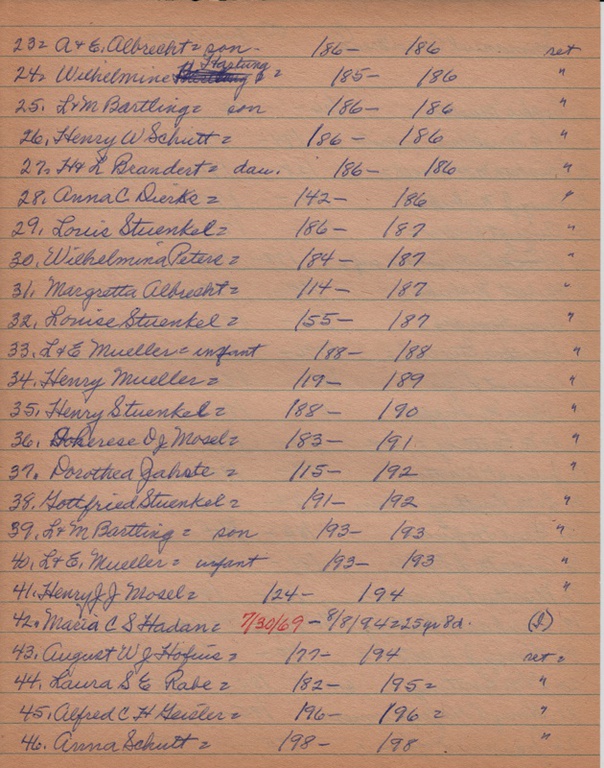 23= A+E. Albrecht = son - 186- 186 ret
24= Wilhelmine Hartung = 185- 186 "
25. L+M Bartling = son 186- 186 "
26. Henry W Schutt = 186- 186 "
27. H+L Brandert = dau. 186- 186 "
28. Anna C Dierks = 142- 186 "
29. Louis Stuenkel = 186- 187 "
30. Wilhelmina Peters = 184- 187 "
31. Margretta Albrecht = 114- 187 "
32. Louise Stuenkel = 155- 187 "
33. L+E Mueller = infant 188- 188 "
34. Henry Mueller = 119- 189 "
35. Henry Stuenkel = 188- 190 "
36. D J Mosel = 183- 191 "
37. Dorothea = 115- 192 "
38. Gottfried Stuenkel = 191- 192 "
39. L+M Bartling = son 193- 193 "
40. L+E. Mueller = infant 193- 193 "
41. Henry J J Mosel = 124- 194 "
42. Maria C S Hadan = 7/30/69 - 8/8/94 = 25 yr 8 d. (I)
43. August W J Hofius = 177- 194 ret =
44. Laura S E Rabe = 182- 195 = "
45. Alfred C H Geisler = 196- 196 = "
46. Anna Schutt = 198- 198 "